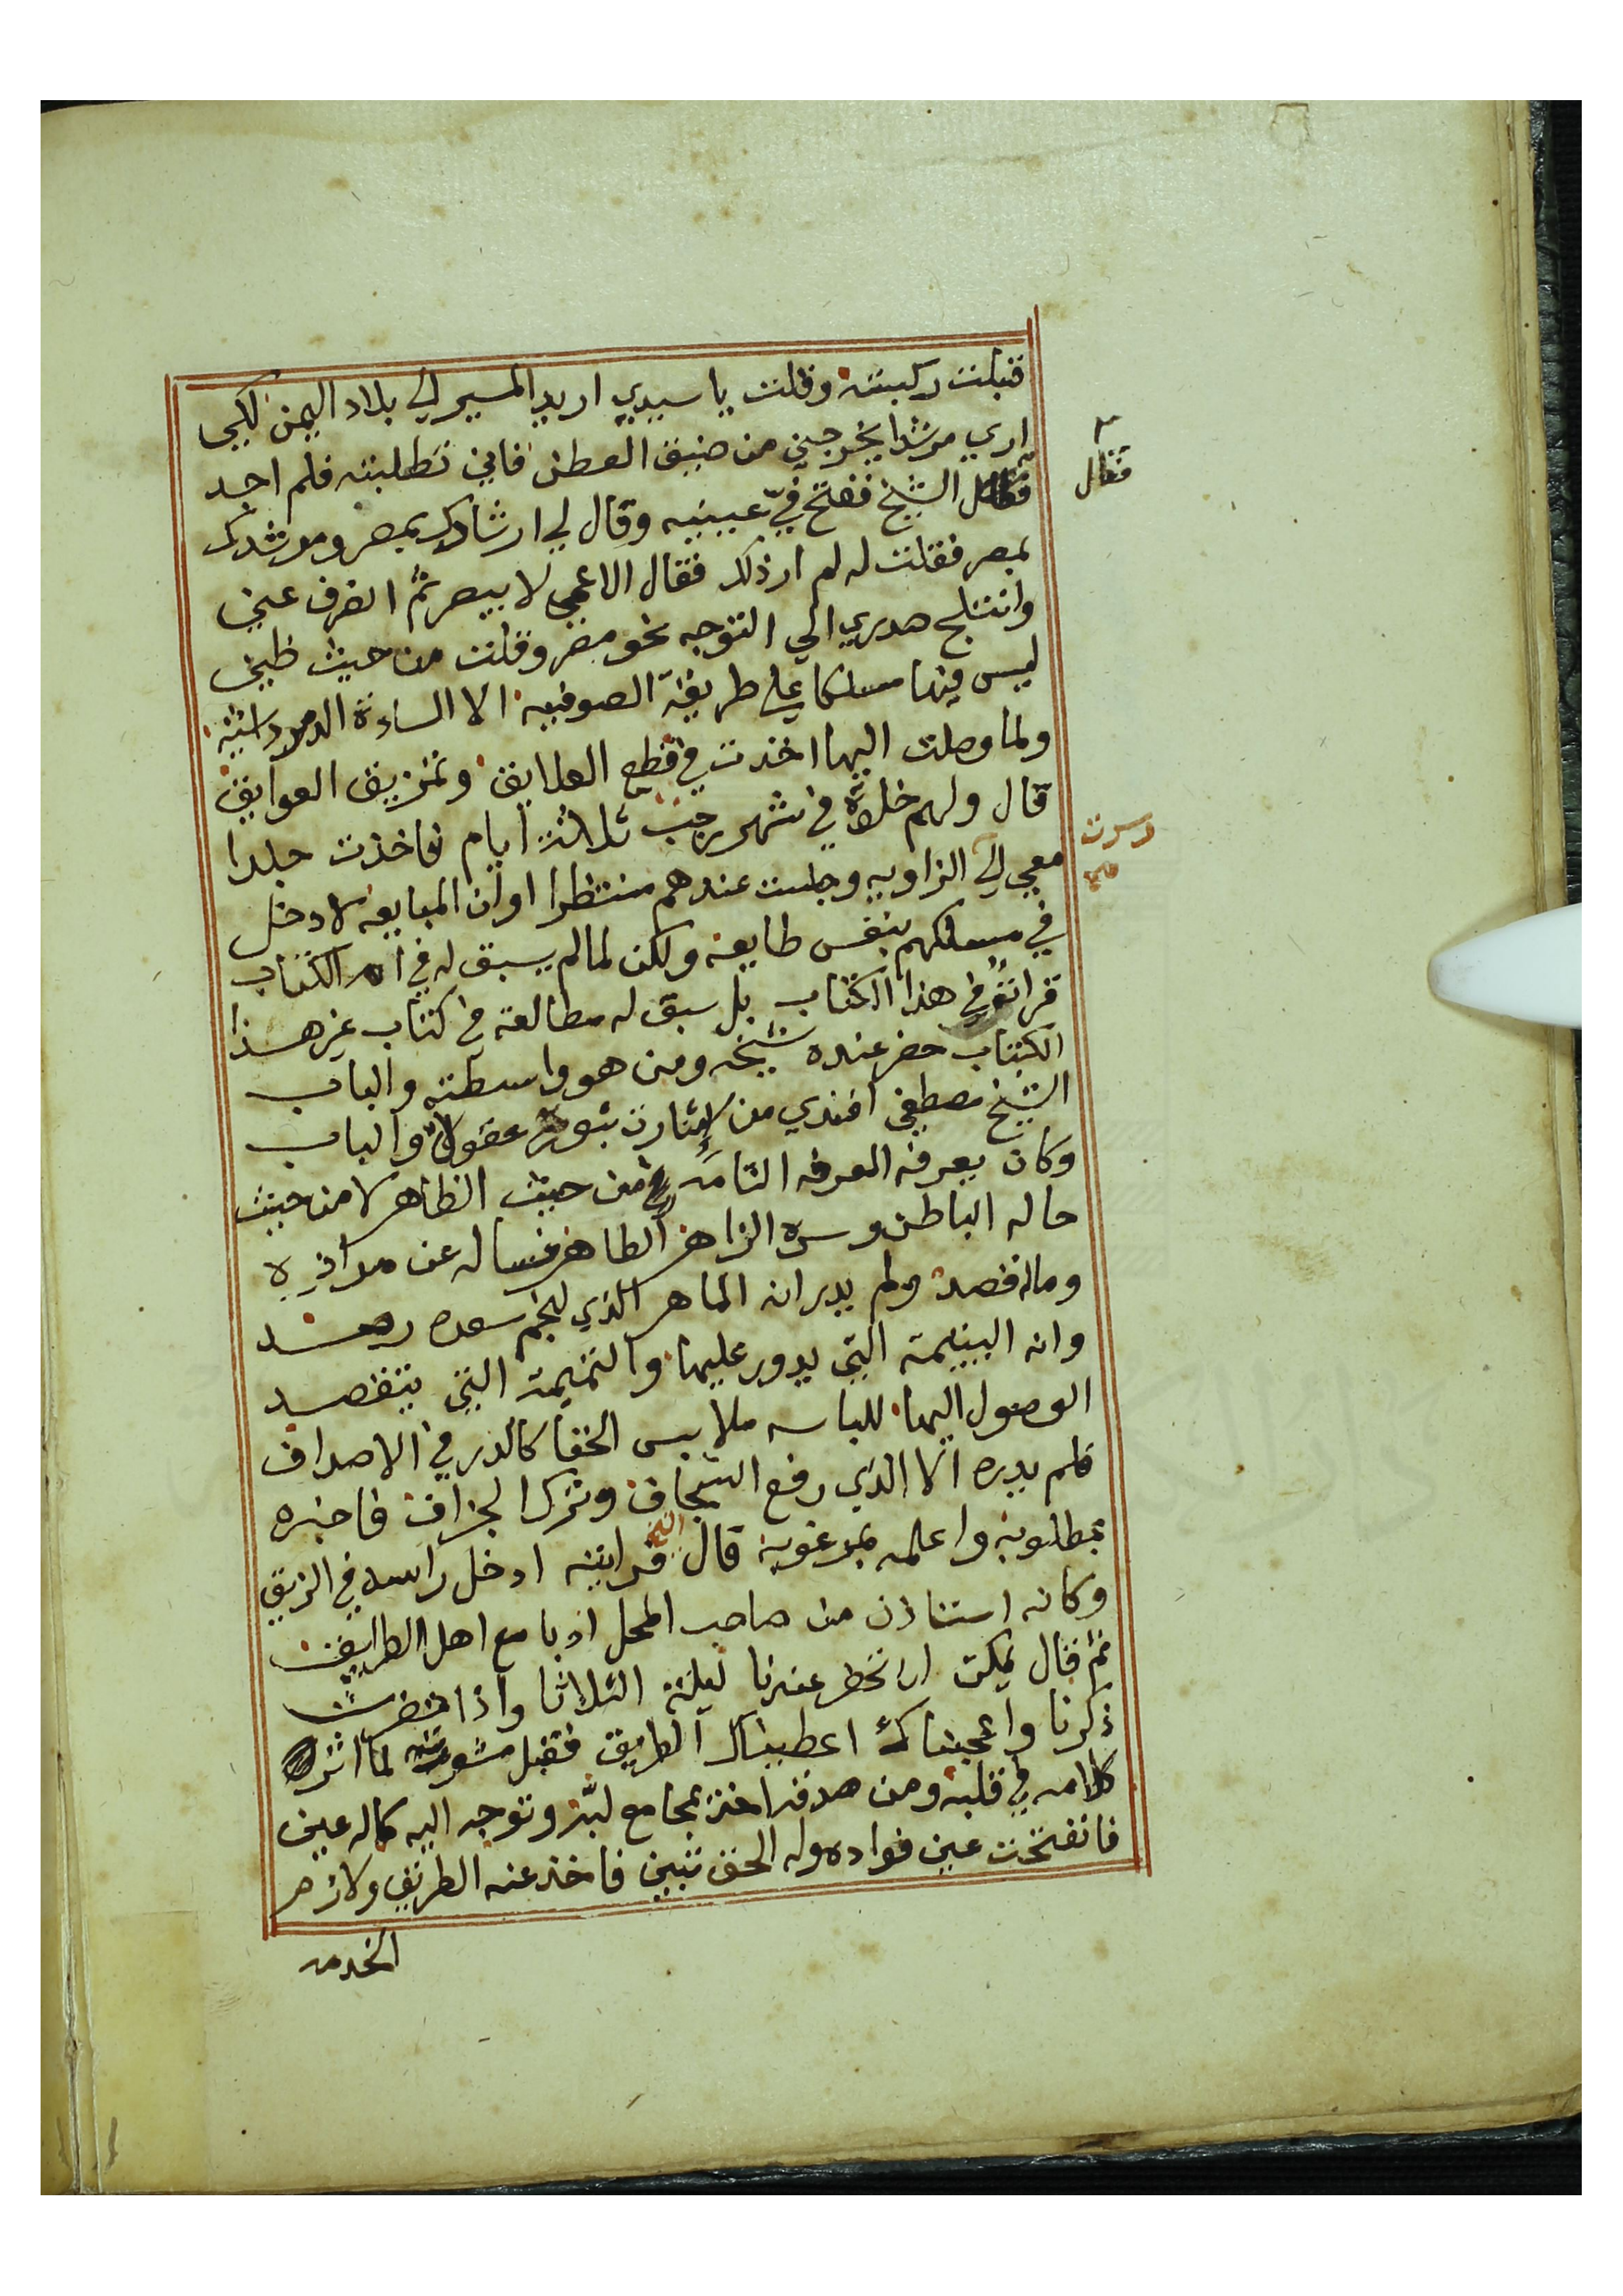 قبلت ركبته وقلت يا سيدي اريد المسير الي بلاد اليمن لكي
اري مرشدا يخرجني من ضيق العطن فاني تطلبته فلم اجد
الشيخ ففتح فيّ عينيه وقال لي ارشادك بمصر ومرشدك
فقال
بمصر فقلت له لم ار ذلك فقال الاعمي لا يبصر ثم انصرف عني
وانثلج صدري الي التوجه نحو مصر وقلت من حيث ظني
ليس فيها مسلكا علي طريقة الصوفيه الا السادة الدمرداشية
ولما وصلت اليها اخذت في قطع العلايق وتمزيق العوايق
قال ولهم خلوة في شهر رجب ثلاثة ايام فاخذت جلدا
معي الي الزاويه وجلست عندهم منتظرا اوان المبايعه لادخل
في مسلكهم بنفس طايعه ولكن لما لم يسبق له في ام الكتاب
قراته في هذا الكتاب بل سبق له مطالعة في كتاب غير هذا
الكتاب حضر عنده شيخه ومن هو واسطته والباب
الشيخ مصطفي افندي من لاشارت عقول والباب
وكان يعرفه العرفه التامه من حيث الظاهر لا من حيث
حاله الباطن وسره الزاهر الطاهر فساله عن مراده
وماله قصد ولم يدر انه الماهر الذي لنجم سعده رصد
وانه اليتيمة التي يدور عليها والتميمة التي يتقصد
الوصول اليها للباسه ملابس الخفا كالدر في الاصداف
فلم يدره الا الذي رفع السجاف وترك الجزاف فاخبره
بمطلوبه واعلمه بمرغوبه قال فرايته ادخل راسه في الزيق
وكانه استاذن من صاحب المحل ادبا مع اهل الطريق
ثم قال يمكن ان تحضر عندنا ليلة الثلاثا واذا حضرت
ذكرنا واعجبناك اعطيناك الطريق فقبل مشورته لما اثر
كلامه في قلبه ومن صدقه اخذ بمجامع لبّه وتوجه اليه كماله عين
فانفتحت عين فواده وله الحق تبين فاخذ عنه الطريق ولازم
الخدمه